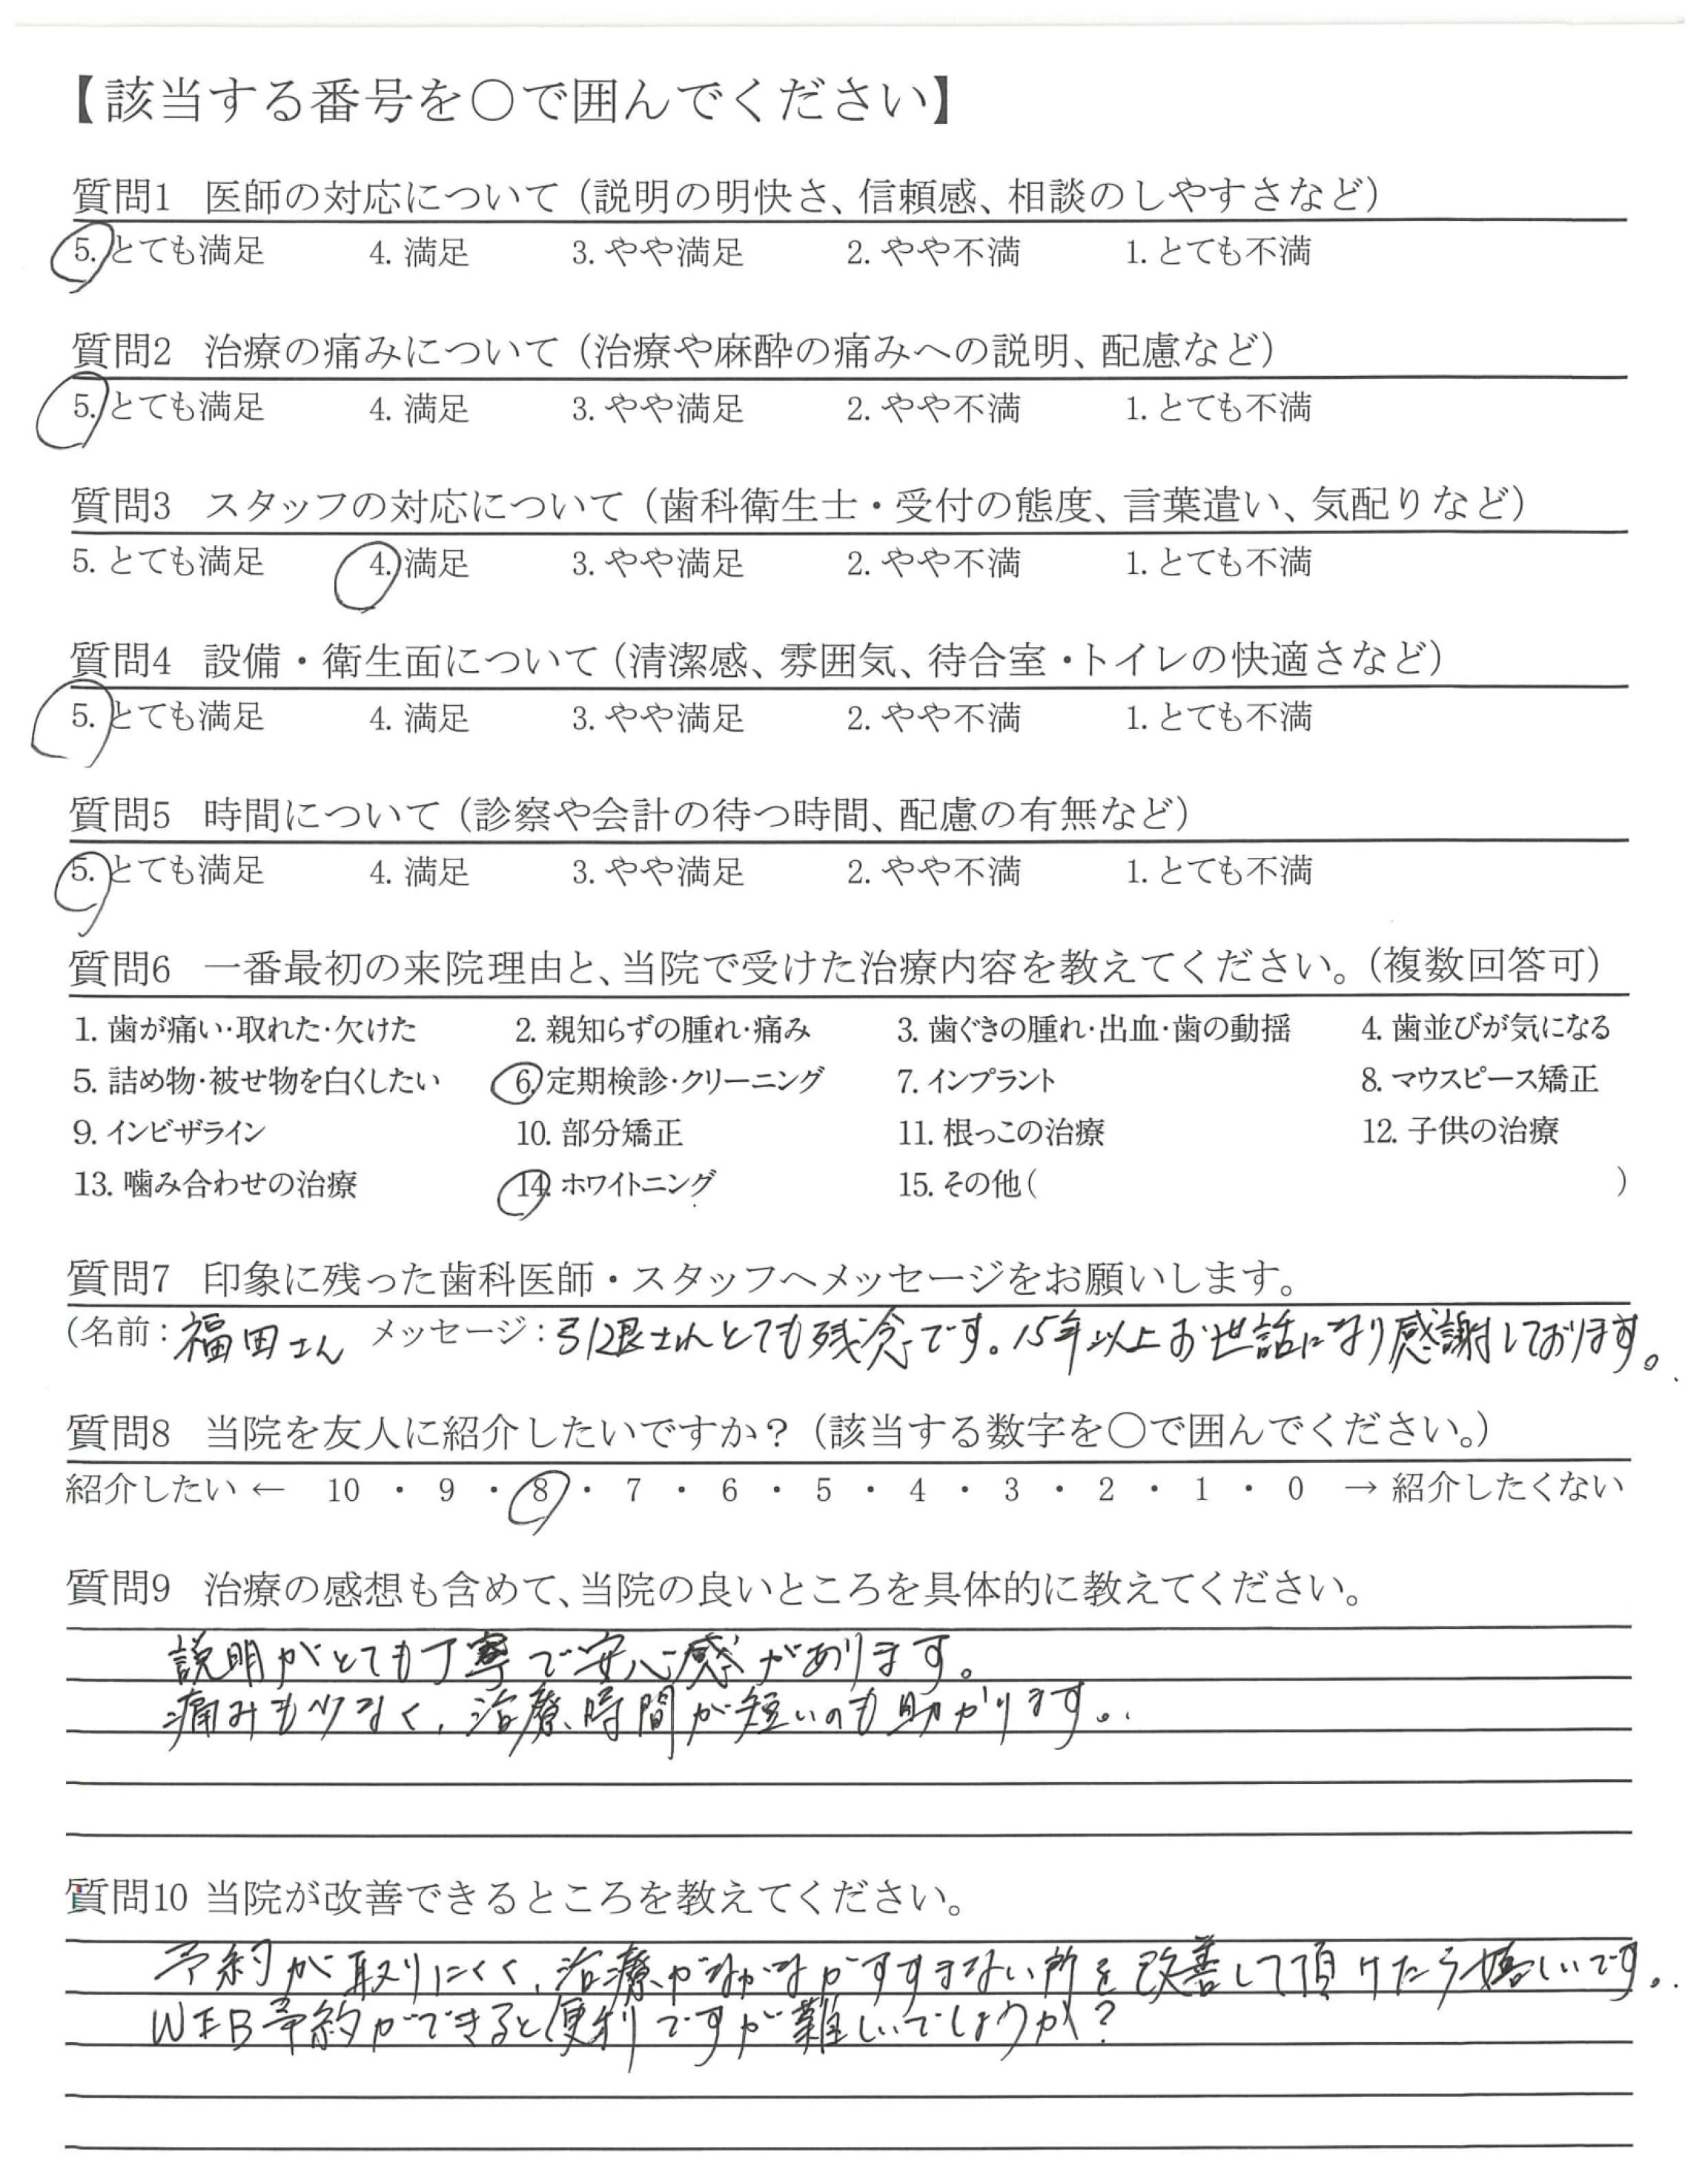 【該当する番号を○で囲んでください】
質問1 医師の対応について（説明の明快さ、信頼感、相談のしやすさなど）
5. とても満足 4. 満足 3. やや満足 2. やや不満 1. とても不満
質問2 治療の痛みについて（治療や麻酔の痛みへの説明、配慮など）
5. とても満足 4. 満足 3. やや満足 2. やや不満 1. とても不満
質問3 スタッフの対応について（歯科衛生士・受付の態度、言葉遣い、気配りなど）
5. とても満足 4. 満足 3. やや満足 2. やや不満 1. とても不満
質問4 設備・衛生面について（清潔感、雰囲気、待合室・トイレの快適さなど）
5. とても満足 4. 満足 3. やや満足 2. やや不満 1. とても不満
質問5 時間について（診察や会計の待つ時間、配慮の有無など）
5. とても満足 4. 満足 3. やや満足 2. やや不満 1. とても不満
質問6 一番最初の来院理由と、当院で受けた治療内容を教えてください。（複数回答可）
1. 歯が痛い・取れた・欠けた 2. 親知らずの腫れ・痛み 3. 歯ぐきの腫れ・出血・歯の動揺 4. 歯並びが気になる
5. 詰め物・被せ物を白くしたい 6. 定期検診・クリーニング 7. インプラント 8. マウスピース矯正
9. インビザライン 10. 部分矯正 11. 根っこの治療 12. 子供の治療
13. 噛み合わせの治療 14. ホワイトニング 15. その他（ ）
質問7 印象に残った歯科医師・スタッフへメッセージをお願いします。
（名前：福田さん メッセージ：引退されとても残念です。15年以上お世話になり感謝しております。
質問8 当院を友人に紹介したいですか？（該当する数字を○で囲んでください。）
紹介したい ← 10 ・ 9 ・ 8 ・ 7 ・ 6 ・ 5 ・ 4 ・ 3 ・ 2 ・ 1 ・ 0 → 紹介したくない
質問9 治療の感想も含めて、当院の良いところを具体的に教えてください。
説明がとても丁寧で安心感があります。
痛みも少なく、治療時間が短いのも助かります。
質問10 当院が改善できるところを教えてください。
予約が取りにくく、治療がなかなかすすまない所を改善して頂けたら嬉しいです。
WEB予約ができると便利ですが難しいでしょうか？